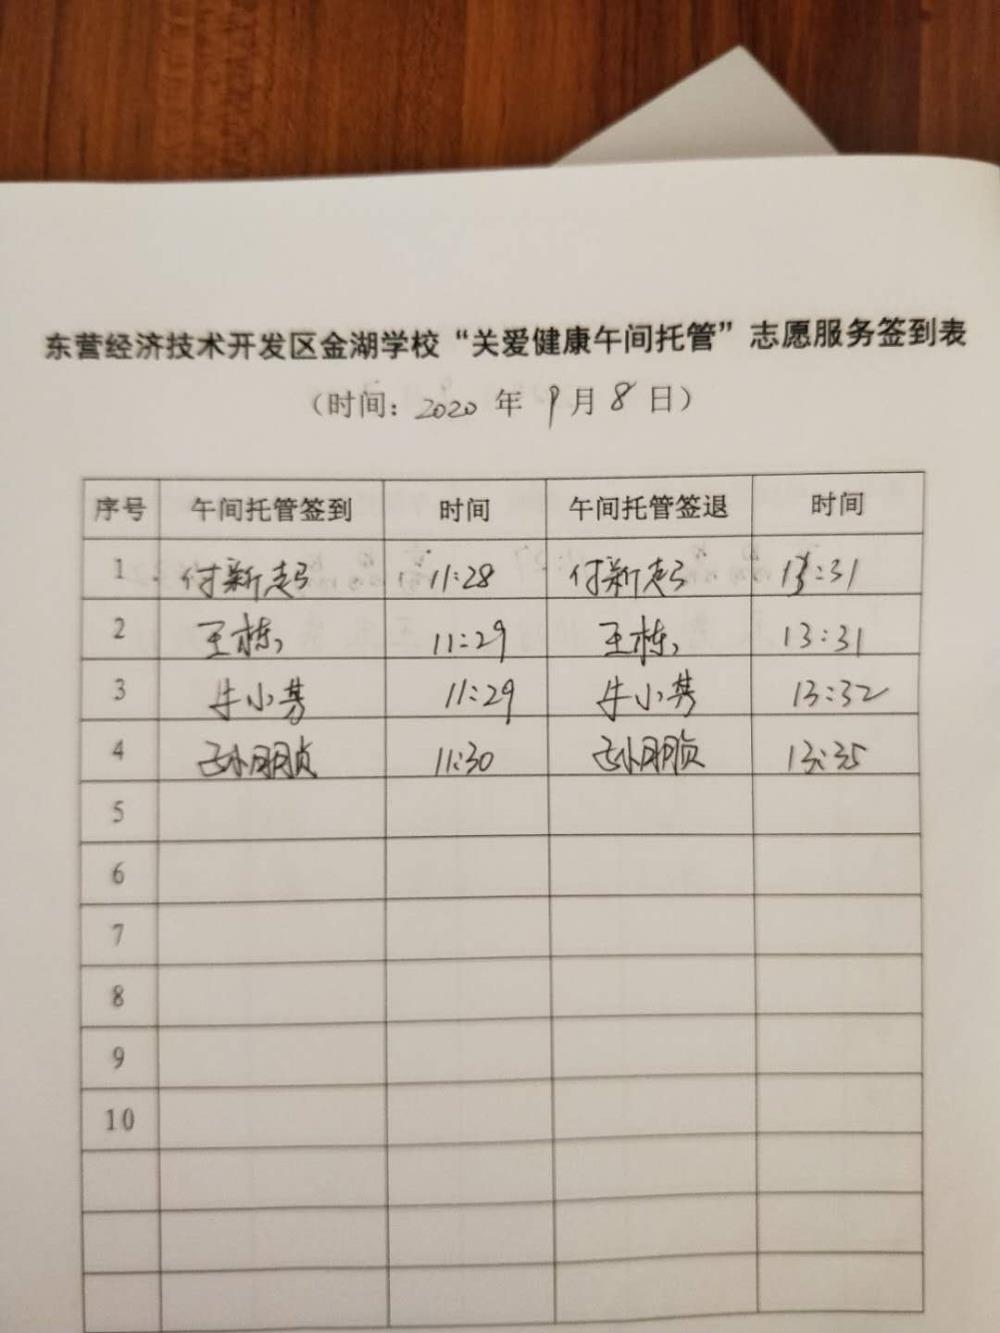 东营经济技术开发区金湖学校“关爱健康午间托管”志愿服务签到表
（时间: 2020 年 9 月 8 日）
序号 午间托管签到 时间 午间托管签退 时间
1 付新起 11:28 付新起 13:31
2 王栋 11:29 王栋 13:31
3 牛小 11:29 牛小 13:32
4 孙朋贞 11:30 孙朋贞 13:35
5
6
7
8
9
10